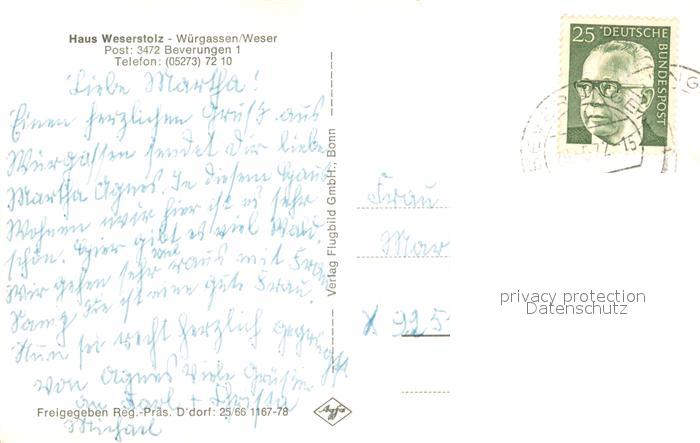 Haus Weserstolz - Würgassen/Weser
Post: 3472 Beverungen 1
Telefon: (05273) 72 10
Liebe Martha!
Einen herzlichen Gruß aus
Würgassen sendet dir liebe
Martha Agnes. In diesem Haus
Wohnen wir hier ist es sehr
schön. Hier gibt es viel Wald,
Wir gehen sehr viel raus mit Frau
die ist eine gute Frau.
Nun sei recht herzlich gegrüßt
von Agnes Viele Grüße
an Karl + Christa
Michael
Freigegeben Reg.-Präs. D'dorf: 25/66 1167-78
Agfa
Verlag Flugbild GmbH., Bonn
25 DEUTSCHE BUNDESPOST
Frau
Mar
X 225
privacy protection
Datenschutz